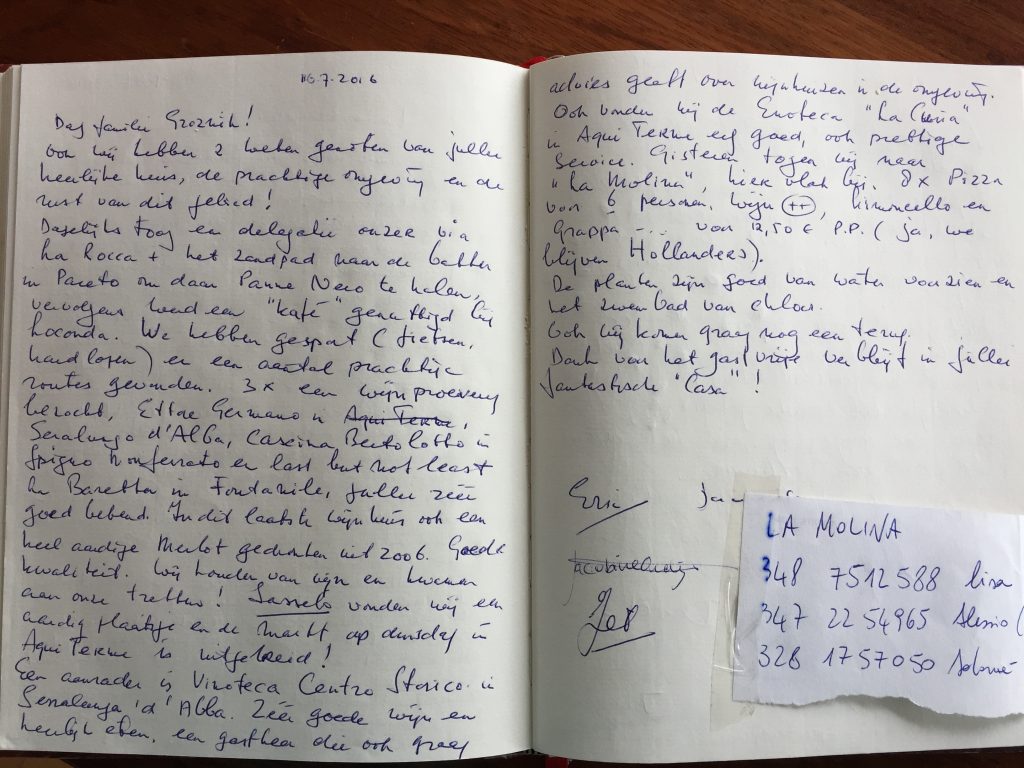 16.7.2016
Dag familie Groznik!
Ook wij hebben 2 weken genoten van jullie
heerlijke huis, de prachtige omgeving en de
rust van dit gebied!
Dagelijks toog en delegatie onzer via
La Rocca + het zandpad naar de bakker
in Pareto om daar Panne Nero te halen,
vervolgens werd een "kafé" genuttigd bij
Loconda. We hebben gesport (fietsen,
hardlopen) er een aantal prachtige
routes gevonden. 3x een wijnproeverij
bezocht, Ettore Germano in Aqui Terme,
Serralunga d'Alba, Cascina Bertolotto in
Spigno Monferrato en last but not least
La Baretta in Fontanile, jullie zéér
goed bekend. In dit laatste wijnhuis ook een
heel aardige Merlot gedronken uit 2006. Goede
kwaliteit. Wij houden van wijn en kwamen
aan onze trekken! Sassello vonden wij een
aardig plaatsje en de markt op dinsdag in
Aqui Terme is uitgebreid!
Een aanrader is Vinoteca Centro Storico in
Serralunga 'd' Alba. Zéér goede wijn en
heerlijk eten, een gastheer die ook graag
advies geeft over wijnhuizen in de omgeving.
Ook vonden wij de Enoteca "La Curia"
in Aqui Terme erg goed, ook prettige
service. Gisteren togen wij naar
"La Molina", hier vlak bij. 8x Pizza
voor 6 personen, wijn ++, limoncello en
Grappa --- voor 12,50 € P.P. (ja, we
blijven Hollanders).
De planten zijn goed van water voorzien en
het zwembad van chloor.
Ook wij komen graag nog een terug.
Dank voor het gastvrije verblijf in jullie
fantastische "Casa"!
Eric
LA MOLINA
348 7512588 Lisa
347 2254965 Alessio (
328 1757050 Salomé